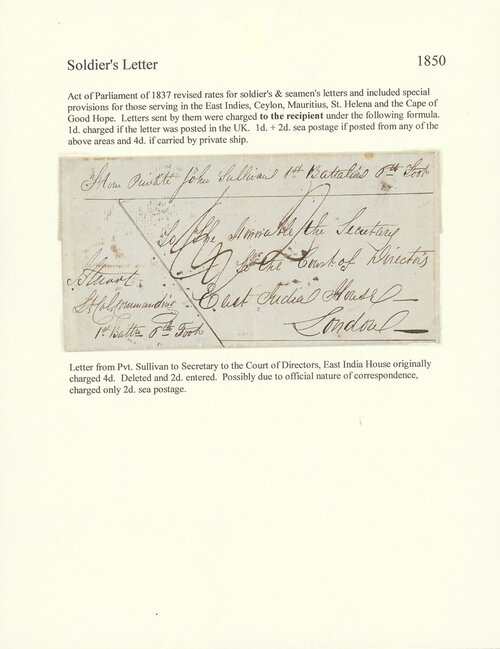 Soldier's Letter
1850
Act of Parliament of 1837 revised rates for soldier's & seamen's letters and included special
provisions for those serving in the East Indies, Ceylon, Mauritius, St. Helena and the Cape of
Good Hope.  Letters sent by them were charged to the recipient under the following formula.
1d. charged if the letter was posted in the UK.  1d. + 2d. sea postage if posted from any of the
above areas and 4d. if carried by private ship.
From Private John Sullivan 1st Battalion 6th Foot
To The Honorable the Secretary
To the Court of Directors
East India House
London
Lt Col Commanding
1st Battn 6th Foot
Letter from Pvt. Sullivan to Secretary to the Court of Directors, East India House originally
charged 4d.  Deleted and 2d. entered.  Possibly due to official nature of correspondence,
charged only 2d. sea postage.